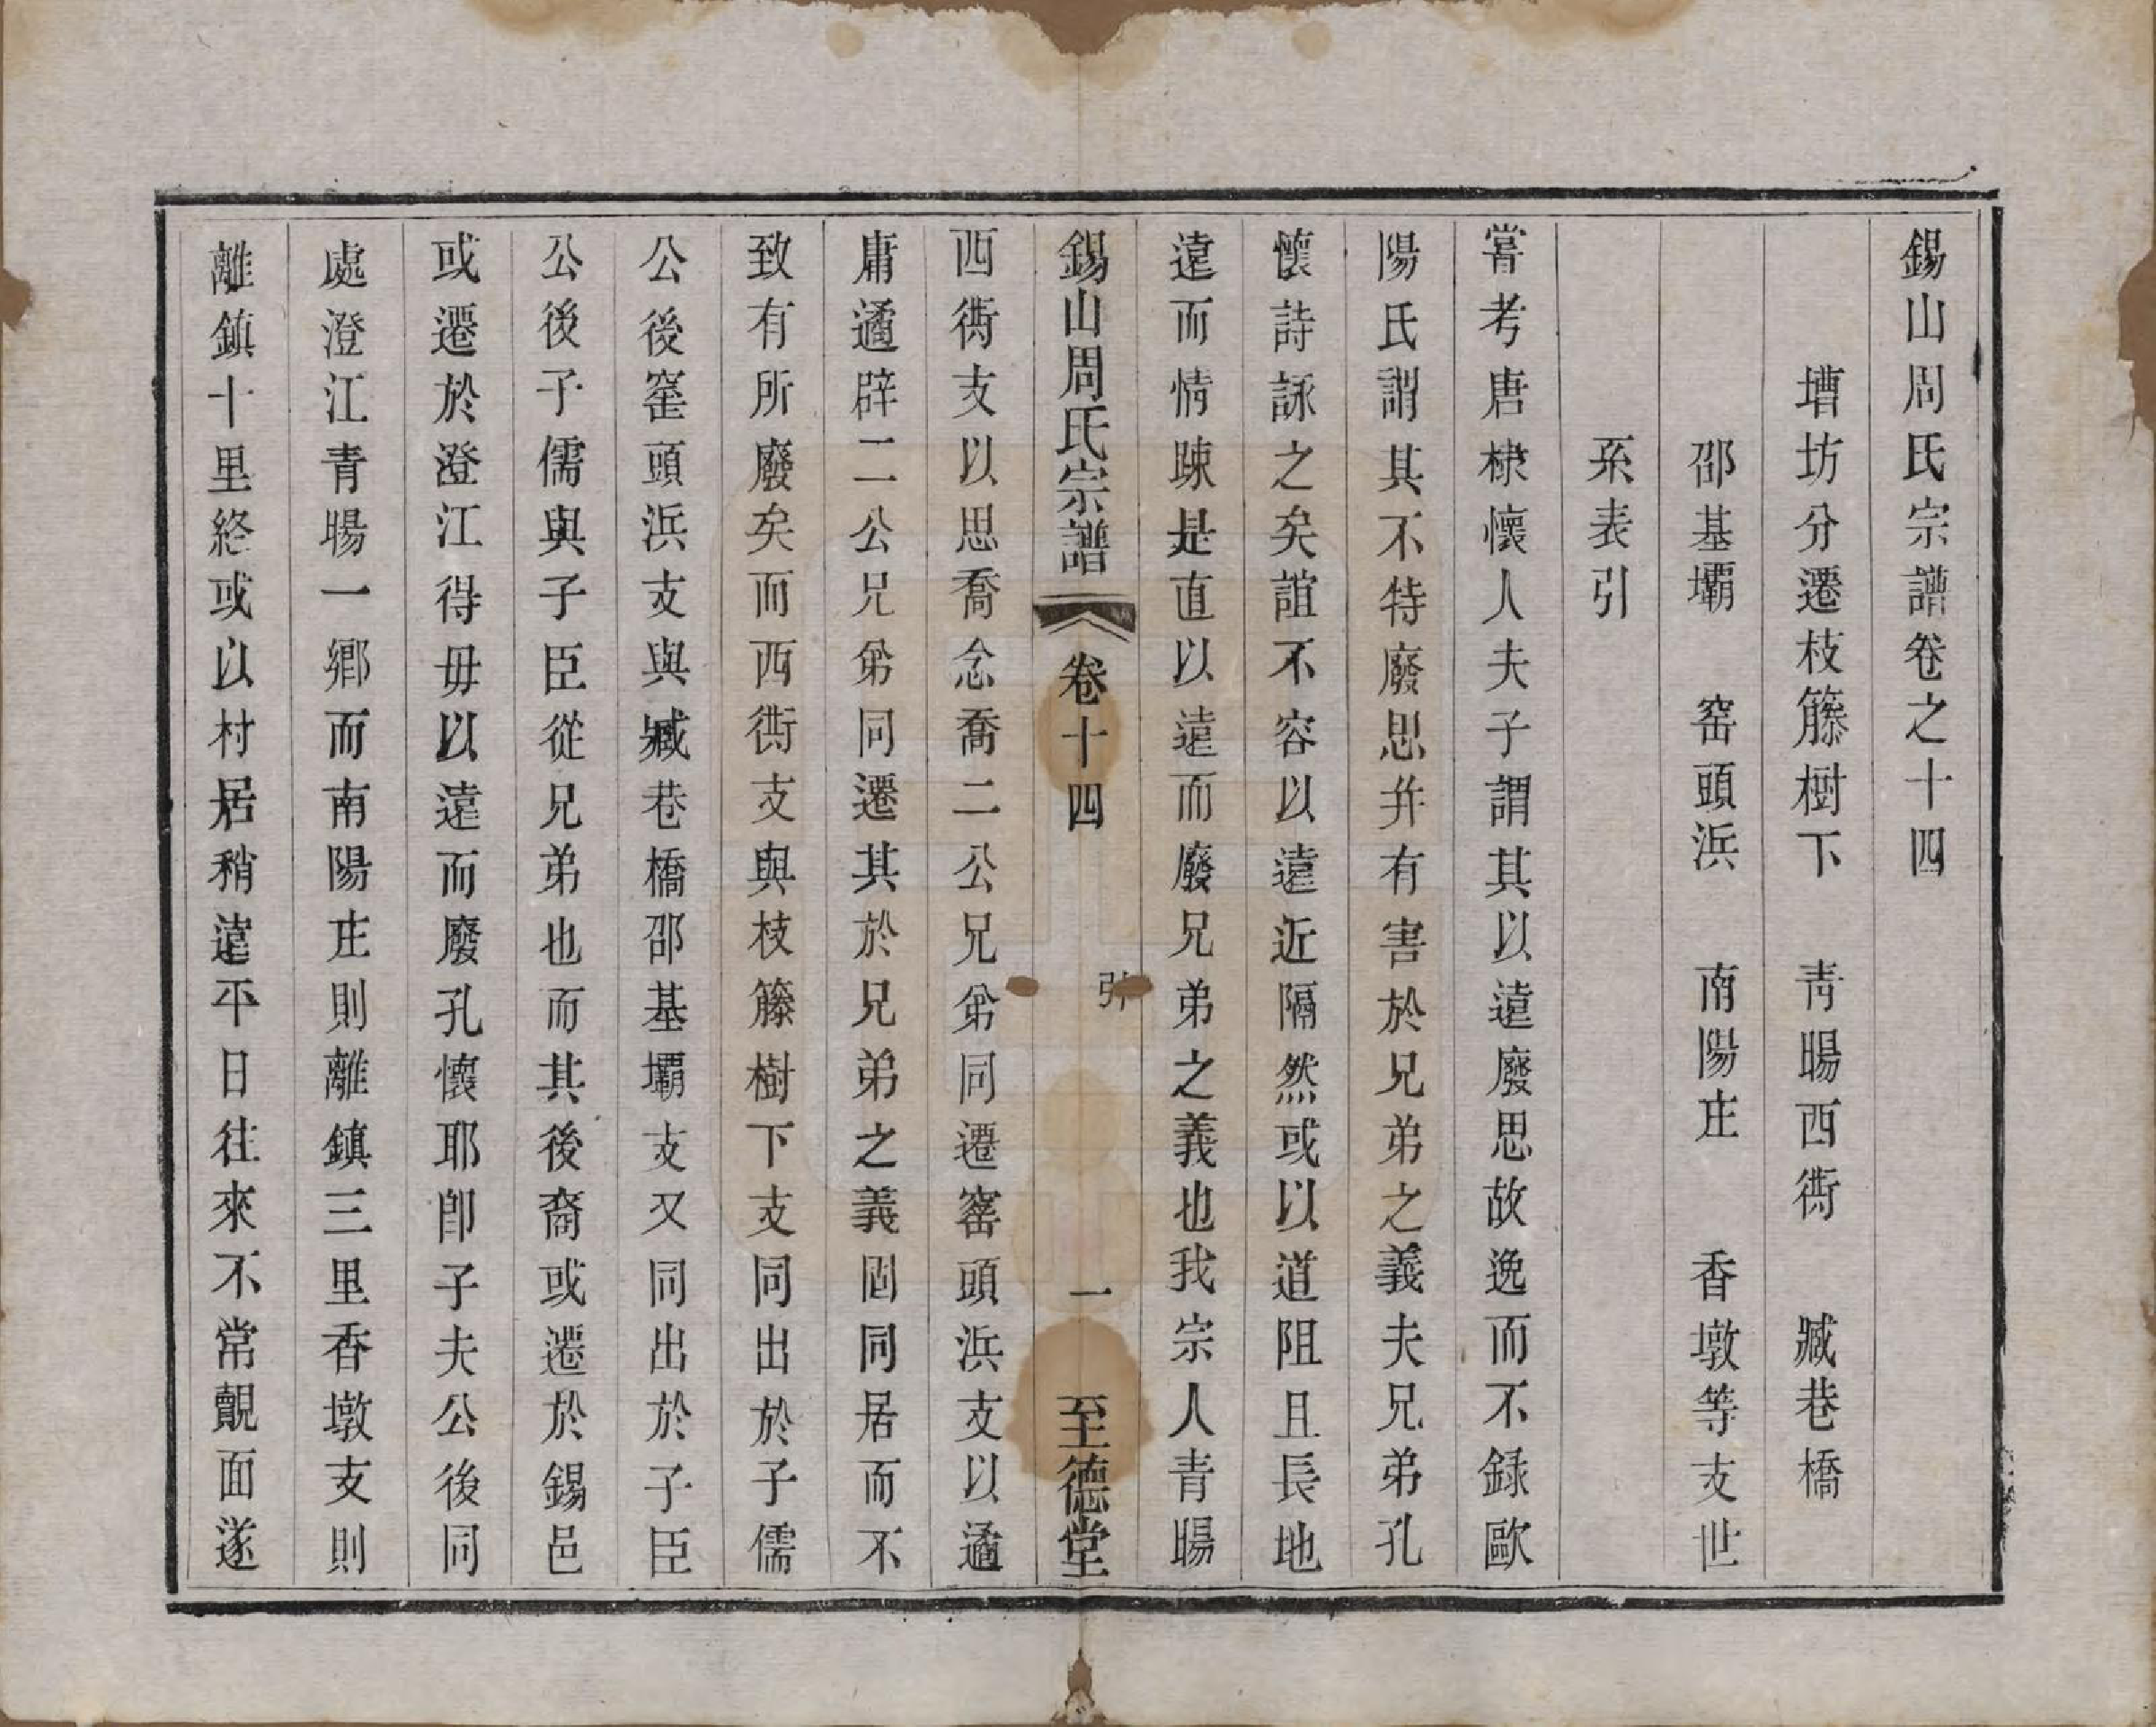 錫山周氏宗譜卷之十四
塘坊分遷枝籐樹下　青暘西衖　臧巷橋
邵基壩　窑頭浜　南陽庄　香墩等支世
系表引
嘗考唐棣懷人夫子謂其以遠廢思故逸而不録歐
陽氏謂其不特廢思并有害於兄弟之義夫兄弟孔
懷詩詠之矣誼不容以遠近隔然或以道阻且長地
遠而情踈是直以遠而廢兄弟之義也我宗人青暘
錫山周氏宗譜　卷十四　引　一　至德堂
西衖支以思喬念喬二公兄弟同遷窰頭浜支以遹
庸遹辟二公兄弟同遷其於兄弟之義固同居而不
致有所廢矣而西衖支與枝籐樹下支同出於子儒
公後窰頭浜支與臧巷橋邵基壩支又同出於子臣
公後子儒與子臣從兄弟也而其後裔或遷於錫邑
或遷於澄江得毋以遠而廢孔懷耶卽子夫公後同
處澄江青暘一鄉而南陽庄則離鎮三里香墩支則
離鎮十里終或以村居稍遠平日往來不常覿面遂